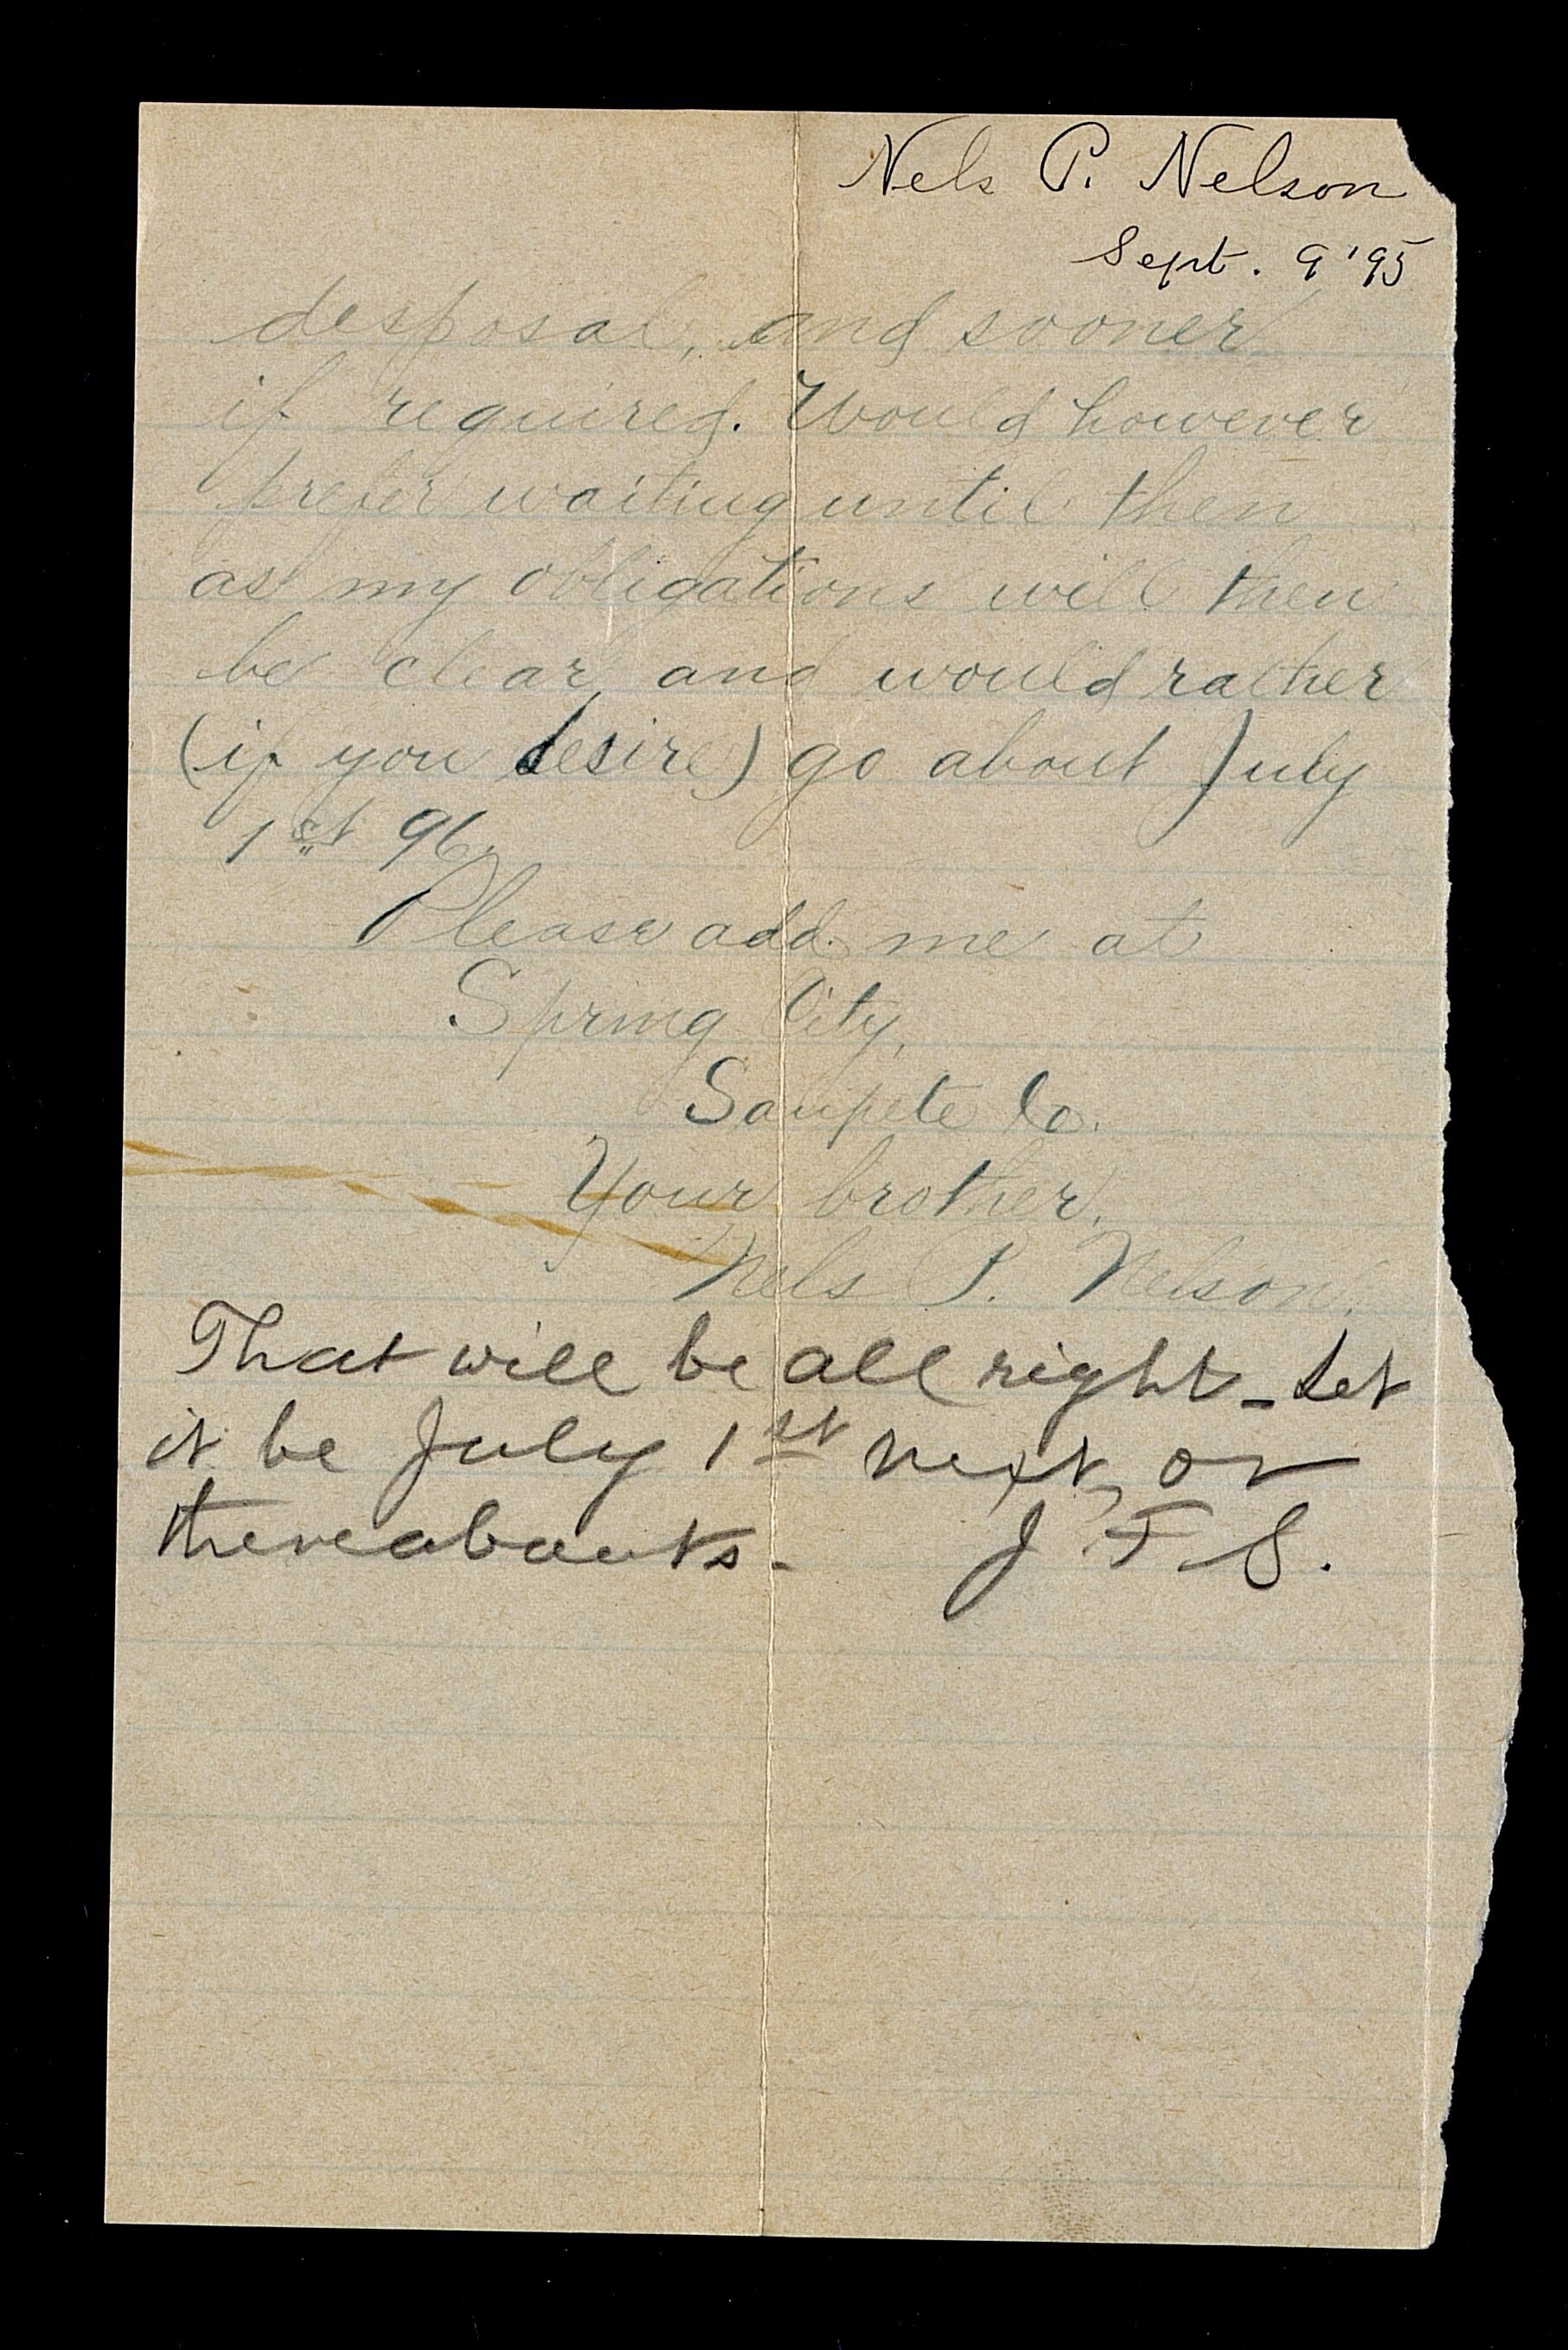 Nels P. Nelson
Sept. 9 '95
desposal, and sooner
if required. Would however
prefer waiting until then
as my obligations will then
be clear, and would rather
(if you desire) go about July
1st 96.
Please add. me at
Spring City,
Sanpete Co.
Your brother,
Nels P. Nelson.
That will be all right - Let
it be July 1st next, or
thereabouts. J. F. S.